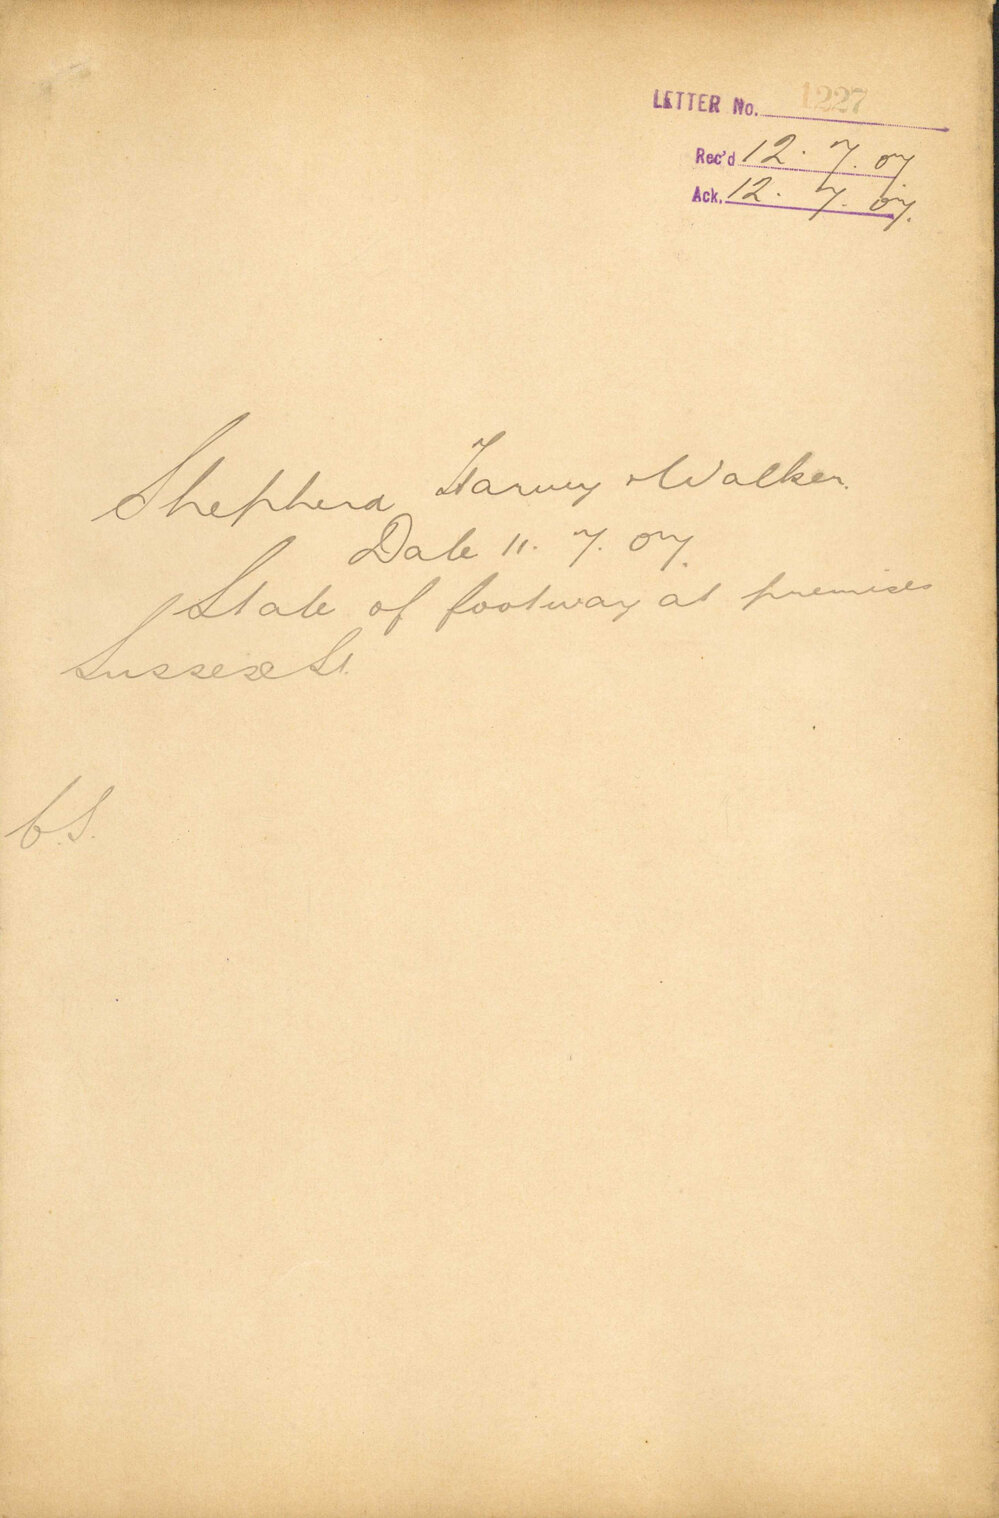 LETTER No. 1227
Rec'd 12. 7. 07
Ack. 12. 7. 07.
Shepherd Harvey & Walker.
Date 11. 7. 07.
State of footway at premises
Sussex St.
C.S.